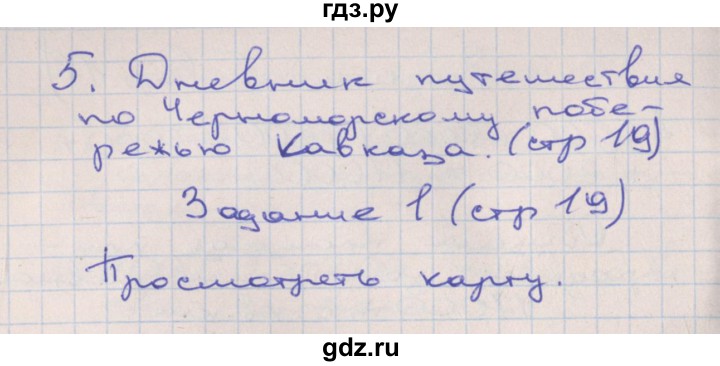 гдз.ру
5. Дневник путешествия
по Черноморскому побе-
режью Кавказа. (стр 19)
Задание 1 (стр 19)
Просмотреть карту.
gdz.ru